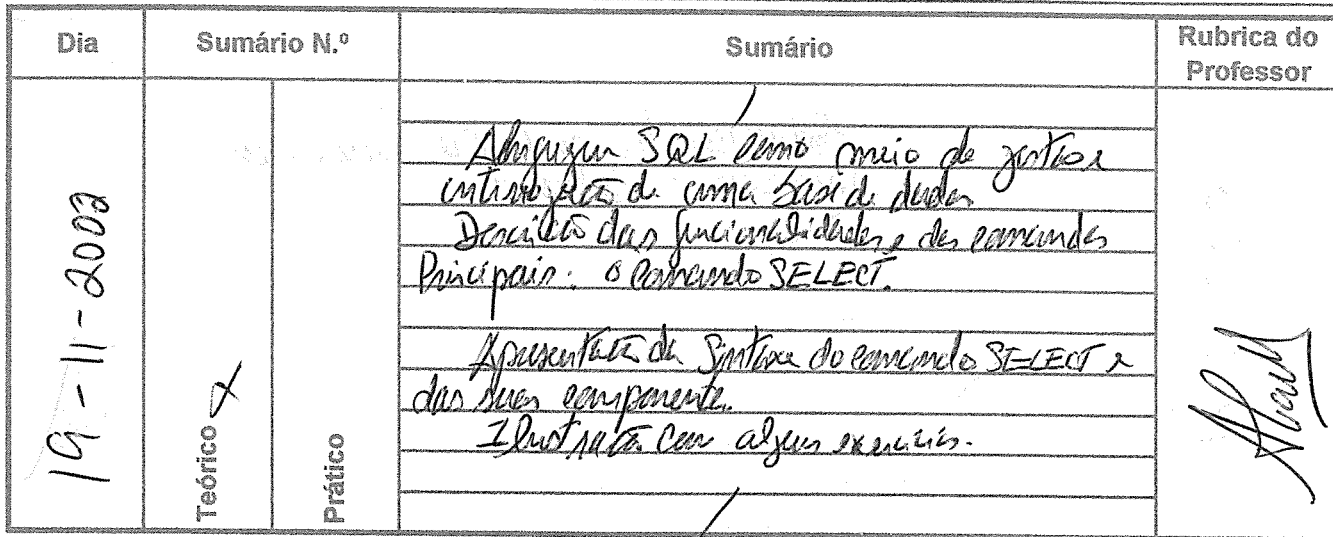 Dia
Sumário N.º
Sumário
Rubrica do
Professor
19-11-2002
Teórico x
Prático
A linguagem SQL como meio de gestão e
interrogação de uma base de dados
Descrição das funcionalidades e dos comandos
Principais: o comando SELECT.
Apresentação da Sintaxe do comando SELECT e
das suas componentes.
Ilustração com alguns exercícios.